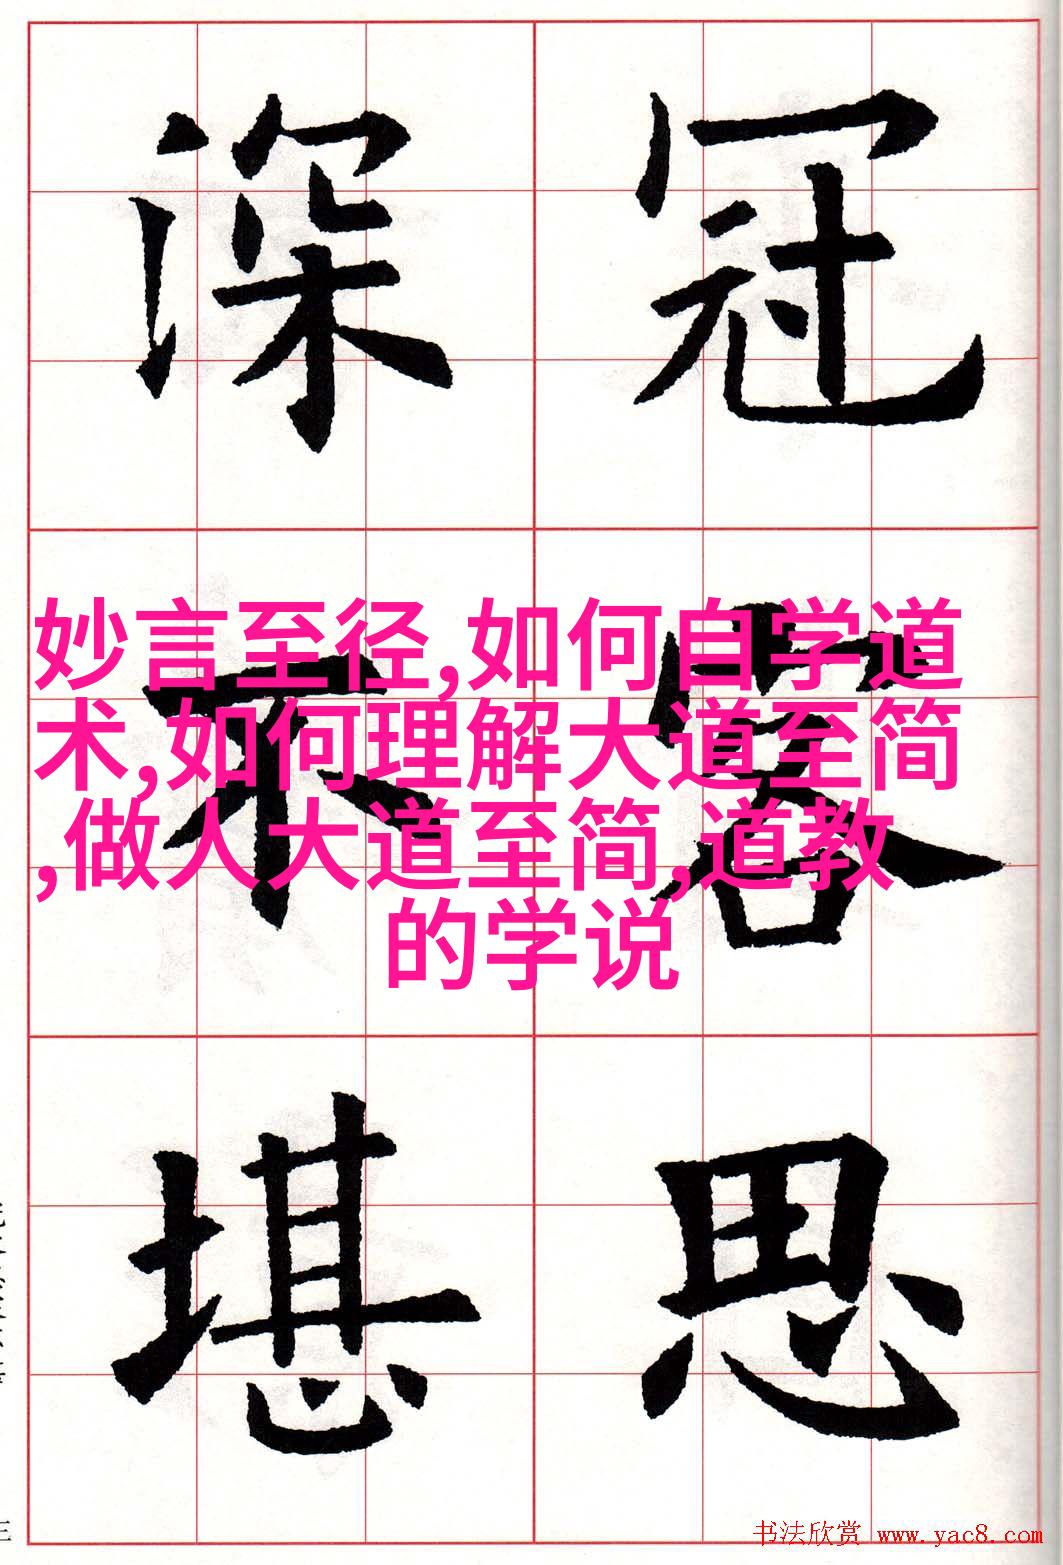 深 冠
不 容
堪 思
妙言至径,如何自学道
术,如何理解大道至简
,做人大道至简,道教
的学说
三
书法欣赏 www.yac8.com